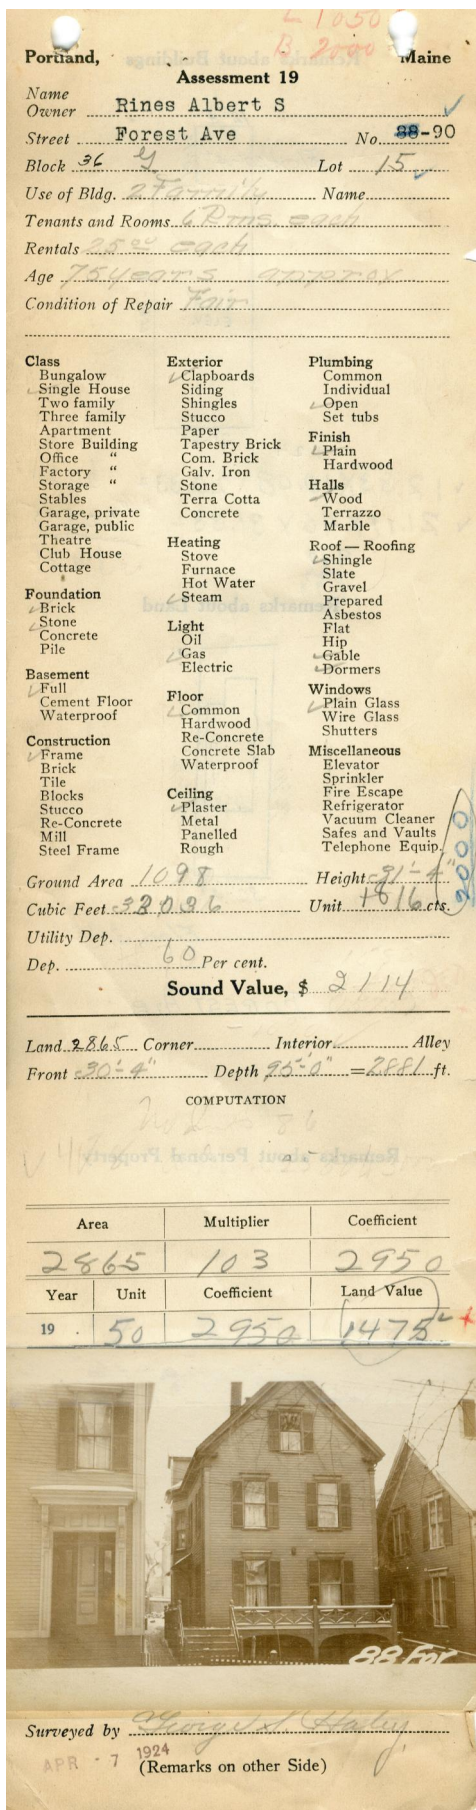 L 1050
B 2000
Portland, Maine
Assessment 19
Name
Owner Rines Albert S
Street Forest Ave No. 88-90
Block 36 G Lot 15
Use of Bldg. 2 Family Name
Tenants and Rooms 6 Rms. each
Rentals 25 00 each
Age 75 years approx
Condition of Repair Fair
Class
Bungalow
Single House
Two family
Three family
Apartment
Store Building
Office "
Factory "
Storage "
Stables
Garage, private
Garage, public
Theatre
Club House
Cottage
Foundation
Brick
Stone
Concrete
Pile
Basement
Full
Cement Floor
Waterproof
Construction
Frame
Brick
Tile
Blocks
Stucco
Re-Concrete
Mill
Steel Frame
Exterior
Clapboards
Siding
Shingles
Stucco
Paper
Tapestry Brick
Com. Brick
Galv. Iron
Stone
Terra Cotta
Concrete
Heating
Stove
Furnace
Hot Water
Steam
Light
Oil
Gas
Electric
Floor
Common
Hardwood
Re-Concrete
Concrete Slab
Waterproof
Ceiling
Plaster
Metal
Panelled
Rough
Plumbing
Common
Individual
Open
Set tubs
Finish
Plain
Hardwood
Halls
Wood
Terrazzo
Marble
Roof — Roofing
Shingle
Slate
Gravel
Prepared
Asbestos
Flat
Hip
Gable
Dormers
Windows
Plain Glass
Wire Glass
Shutters
Miscellaneous
Elevator
Sprinkler
Fire Escape
Refrigerator
Vacuum Cleaner
Safes and Vaults
Telephone Equip.
2000
Ground Area 1098 Height 31'-4"
Cubic Feet Unit 16 cts.
Utility Dep.
Dep. 60 Per cent.
Sound Value, $ 2114
Land 2865 Corner Interior Alley
Front 30'-4" Depth 95'-0" = 2881 ft.
COMPUTATION
Area Multiplier Coefficient
2865 103 2950
Year Unit Coefficient Land Value
19 50 2950 1475
88 For
Surveyed by George S. Haley
APR - 7 1924
(Remarks on other Side)